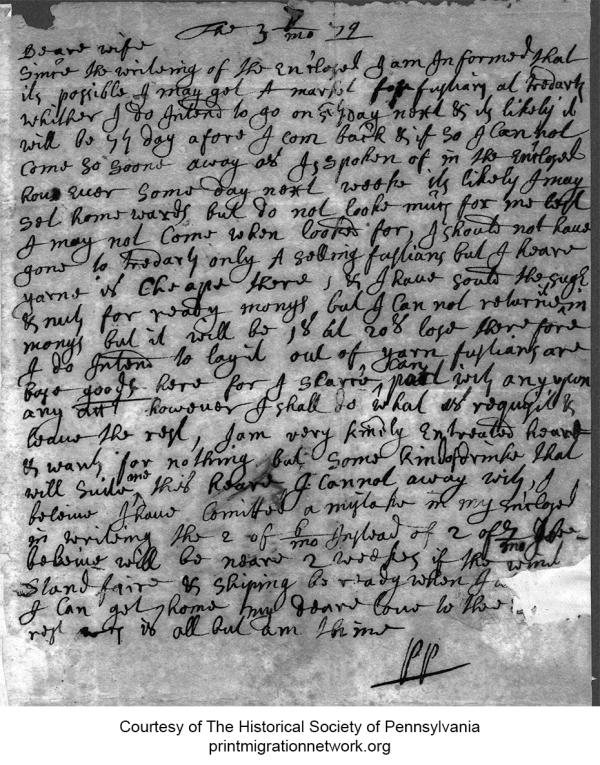 The 3 7/mo 79
Deare wife
Since the writeing of the Enclosed I am Informed that
its possible I may get A market for fustians at Tredarth
whither I do Intend to go on 5th day next & its likely it
will be 7th day afore I com back & if so I can not
come so soone away as I spoken of in the Enclosed
how ever some day next weeke its likely I may
set homewards but do not looke much for me lest
I may not come when looked for, I should not have
gone to Tredarth only A selling fustians but I heare
yarne is cheape there, & I have sould the
& nuts for ready monys, but I can not returne my
monys but it will be 18 or 20s lose therefore
I do Intend to lay it out of yarn, fustians are
base goods here for I scarce can part with any upon
any however I shall do what is requisit &
leave the rest, I am very kindly Entreated heare
& want for nothing but some that
will suite me, this heare I cannot away with, I
beleive I have comitted a mistake in my Enclosed
in writeing the 2 of 6/mo Instead of 2 of 7/mo I be-
beleive will be neare 2 weekes if the wind
stand faire & shiping be ready when I
I can get home my deare love to thee
rest is all but am thine
PP
Courtesy of The Historical Society of Pennsylvania
printmigrationnetwork.org